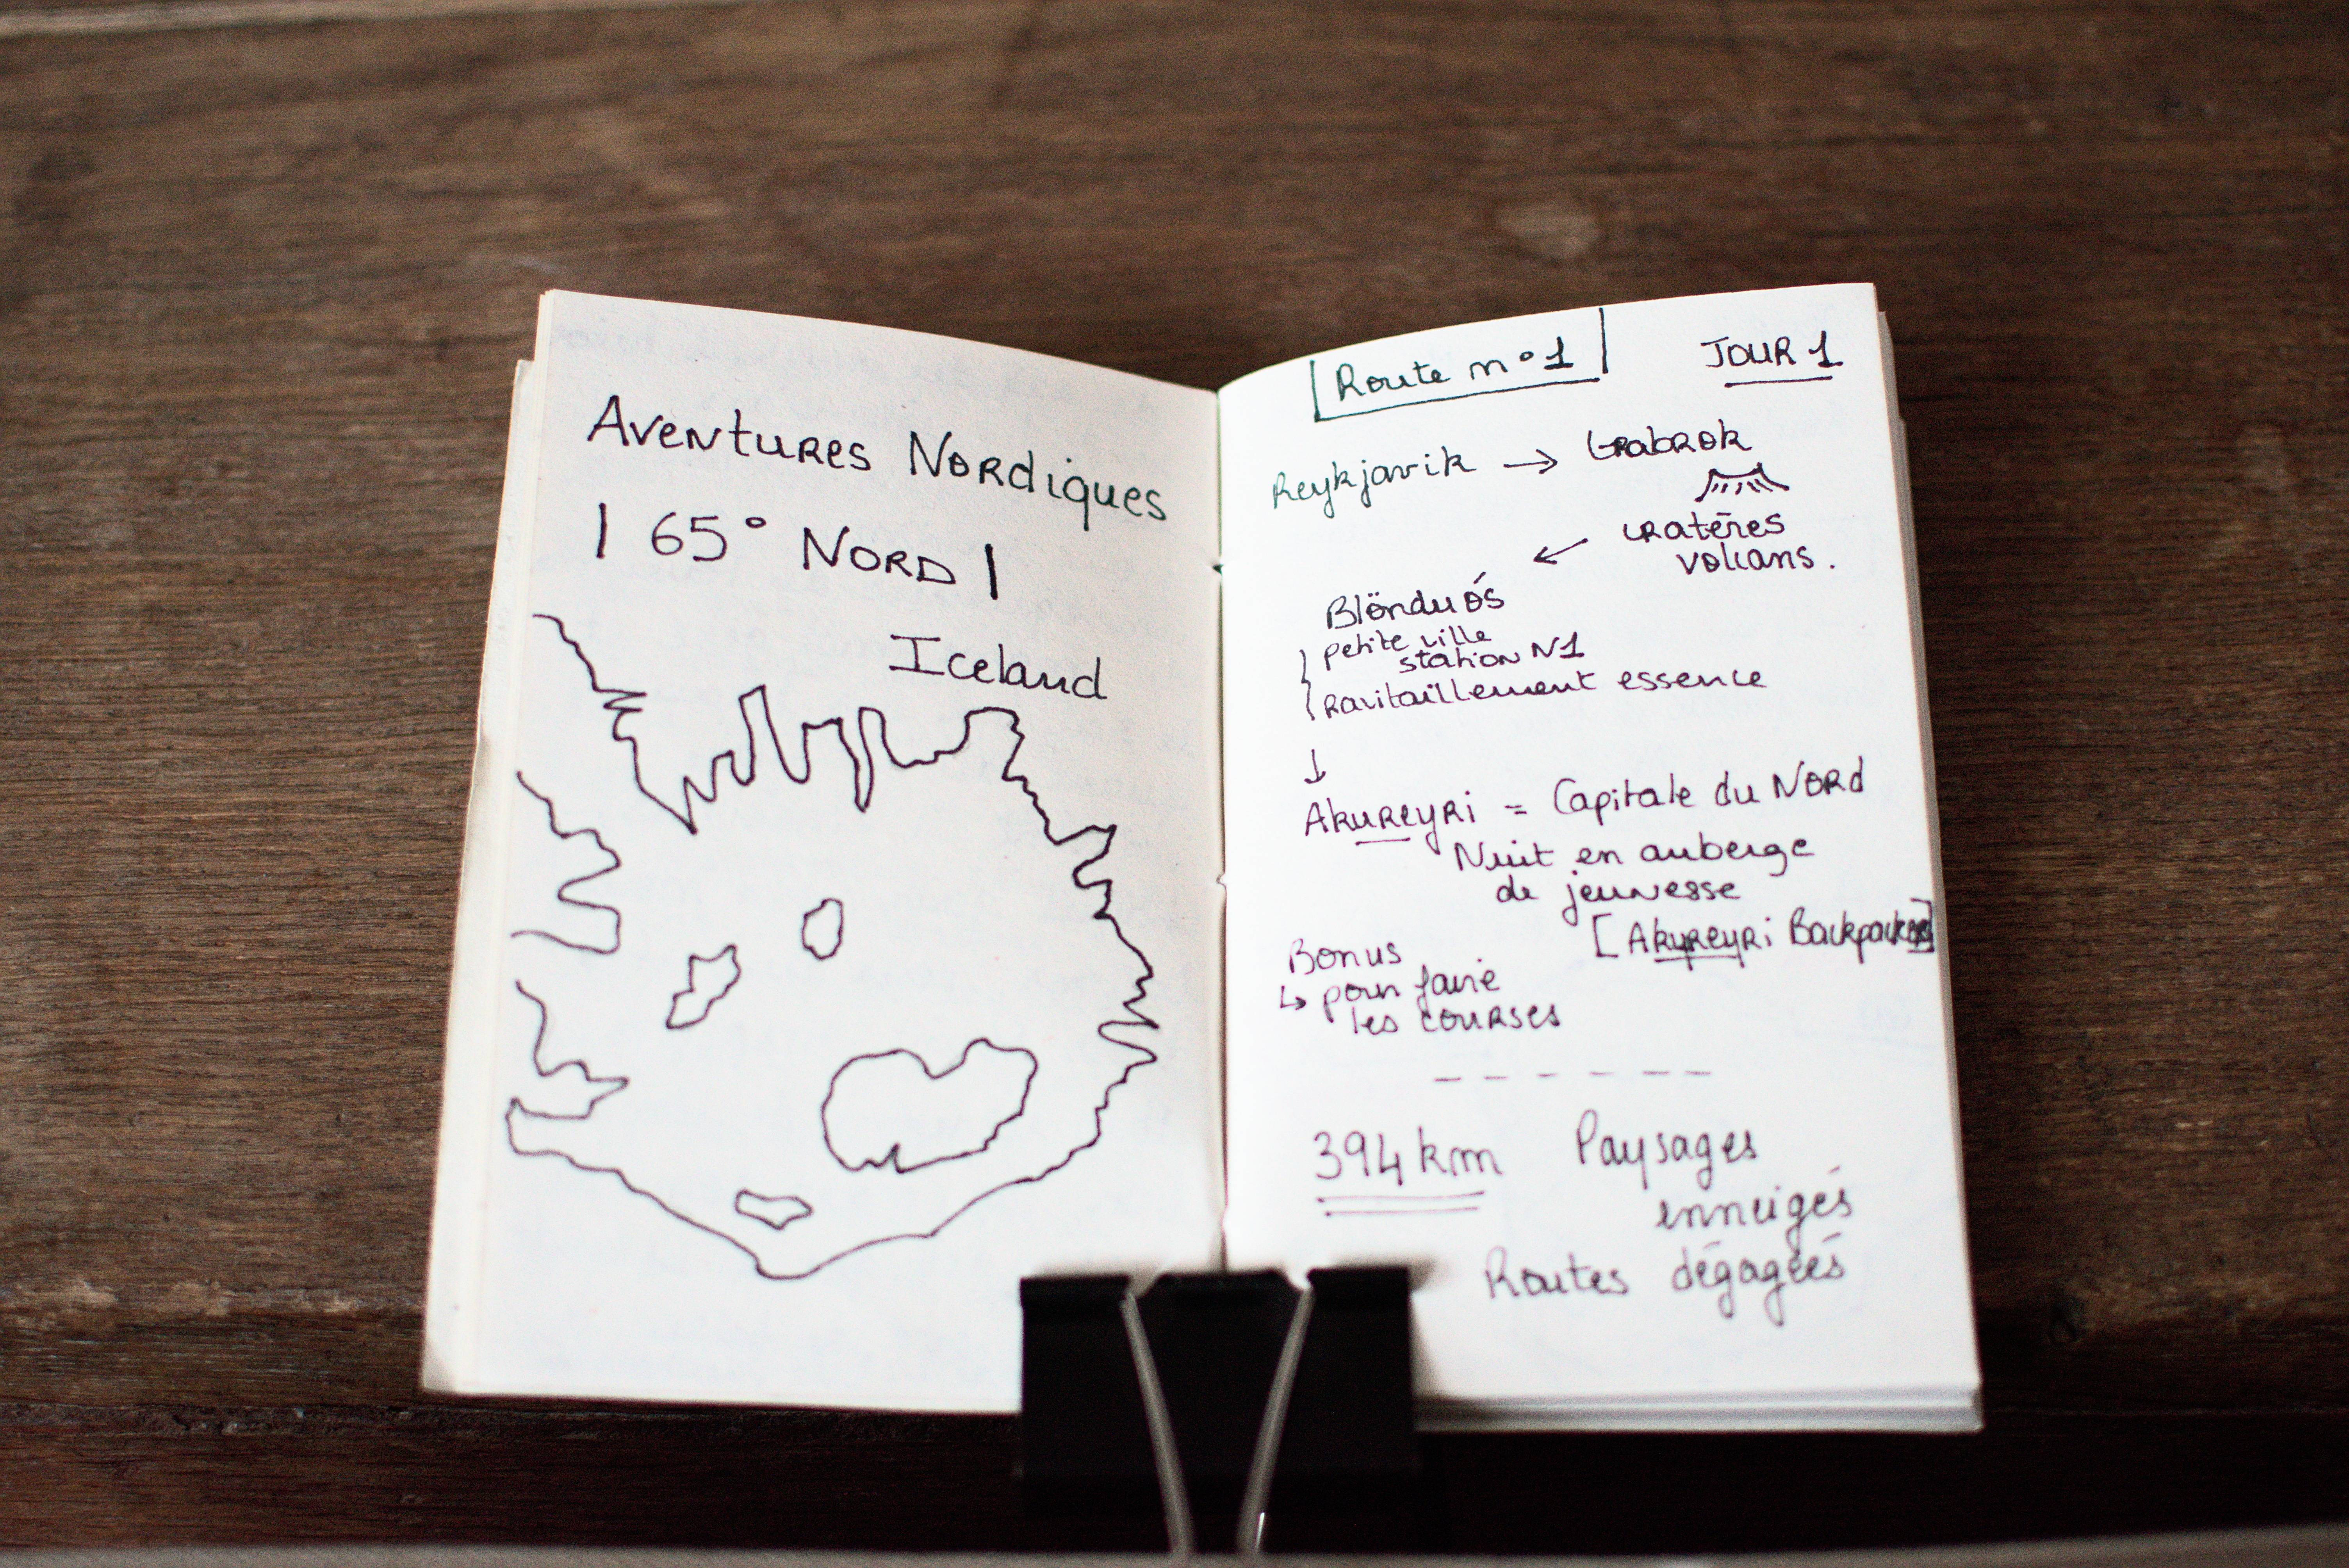 Aventures Nordiques
| 65° Nord |
Iceland
Route n°1
JOUR 1
Reykjavik → Grabrok
cratères
volcans.
←
Blönduós
petite ville
station N1
Ravitaillement essence
↓
Akureyri = Capitale du Nord
Nuit en auberge
de jeunesse
[Akureyri Backpackers]
Bonus
↳ pour faire
les courses
------
394 km Paysages
enneigés
Routes dégagées